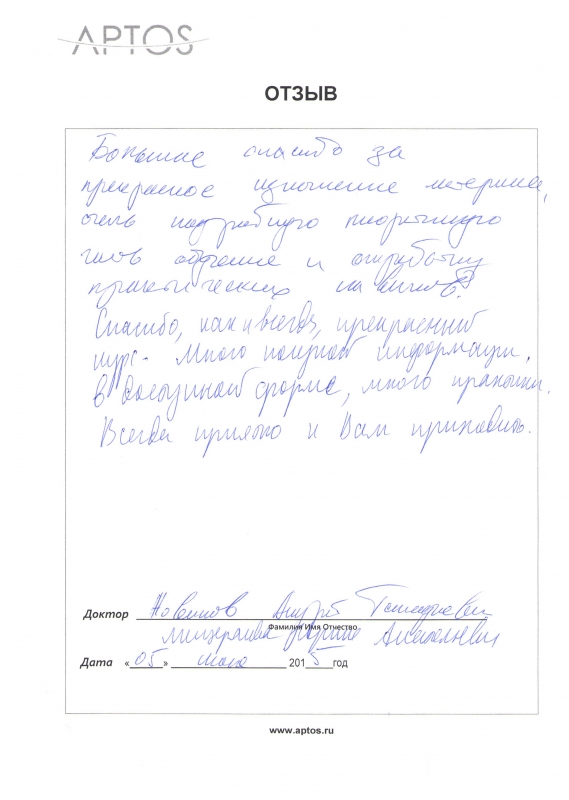 APTOS
ОТЗЫВ
Большое спасибо за
прекрасное изложение материала,
очень подробную теоретическую
часть обучения и отработку
практических навыков.
Спасибо, как и всегда, прекрасный
курс. Много полезной информации,
в доступной форме, много практики.
Всегда приятно к Вам приходить.
Доктор Новиков Андрей Геннадьевич
Фамилия Имя Отчество
Дата «05» 2015 год
www.aptos.ru